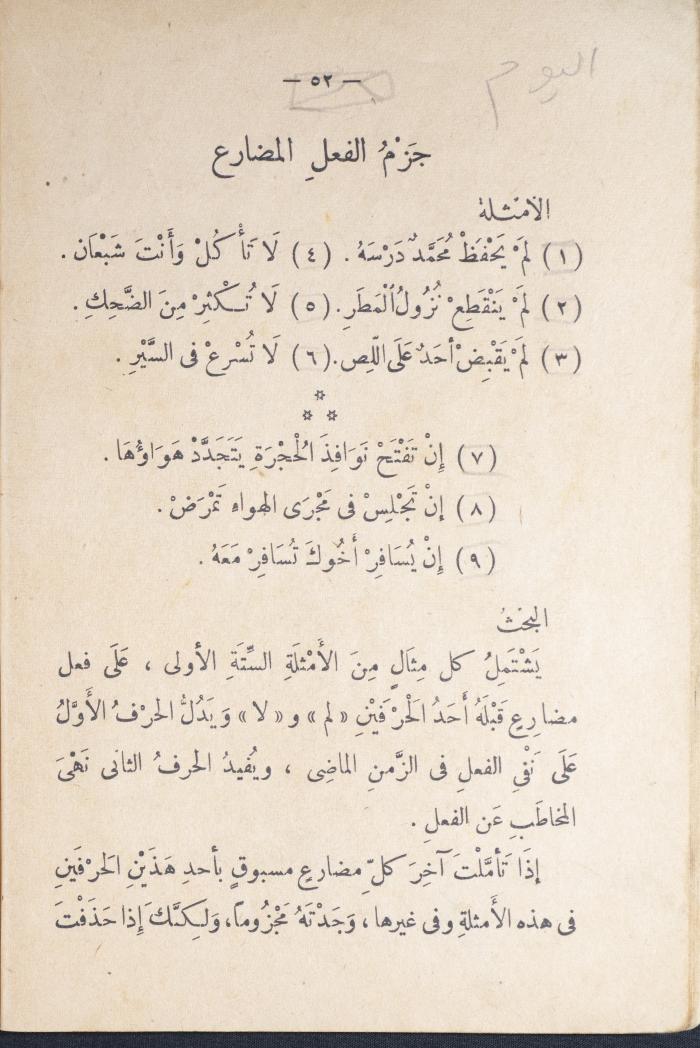 اليوم
— ٥٢ —
جَزْمُ الفعلِ المضارع
الأمثلة
(١) لَمْ يَحْفَظْ مُحَمَّدٌ دَرْسَهُ . (٤) لَا تَأْكُلْ وَأَنْتَ شَبْعَان .
(٢) لَمْ يَنْقَطِعْ نُزُولُ الْمَطَرِ . (٥) لَا تُكْثِرْ مِنَ الضَّحِكِ .
(٣) لَمْ يَقْبِضْ أَحَدٌ عَلَى اللِّص . (٦) لَا تُسْرِعْ فى السَّيْرِ .
(٧) إِنْ تَفْتَحْ نَوَافِذَ الْحُجْرَةِ يَتَجَدَّدْ هَوَاؤُهَا .
(٨) إِنْ تَجْلِسْ فى مَجْرَى الهواءِ تَمْرَضْ .
(٩) إِنْ يُسَافِرْ أَخُوكَ تُسَافِرْ مَعَهُ .
البحْثُ
يَشْتَمِلُ كل مِثَالٍ مِنَ الأَمْثلَةِ السِّتَّةِ الأولى ، عَلَى فعل
مضارِعٍ قَبْلَهُ أَحَدُ الْحَرْفَيْنِ «لم» و «لا» وَيَدُلُّ الحرْفُ الأَوَّلُ
عَلَى نَفْىِ الفعلِ فى الزَّمنِ الماضِى ، ويُفيدُ الحرفُ الثانى نَهْىَ
المخاطَبِ عَن الفعلِ .
إِذَا تَأَمَّلْتَ آخِرَ كلِّ مضارعٍ مسبوقٍ بأحدِ هَذَيْنِ الحَرْفَينِ
فى هذه الأَمثلةِ وفى غيرها ، وَجَدْتَهُ مَجْزُوماً ، وَلكِنَّكَ إِذا حَذَفْتَ